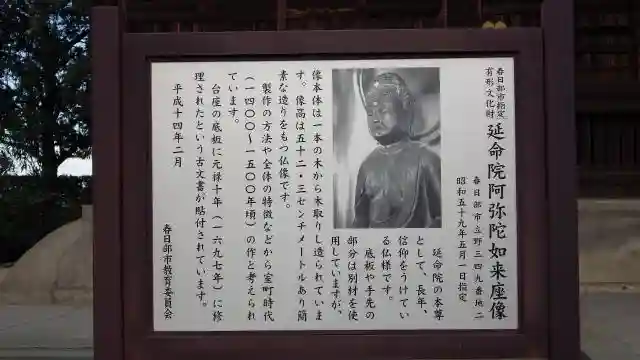 春日部市指定
有形文化財
延命院阿弥陀如来座像
春日部市立野三四九番地二
昭和五十九年五月一日指定
延命院の本尊
として、長年、
信仰をうけてい
る仏様です。
底板や手先の
部分は別材を使
用していますが、
像本体は一本の木から木取りし造られていま
す。像高は五十二・三センチメートルあり簡
素な造りをもつ仏像です。
製作の方法や全体の特徴などから室町時代
（一四〇〇～一五〇〇年頃）の作と考えられ
ています。
台座の底板に元禄十年（一六九七年）に修
理されたという古文書が貼付されています。
平成十四年二月
春日部市教育委員会